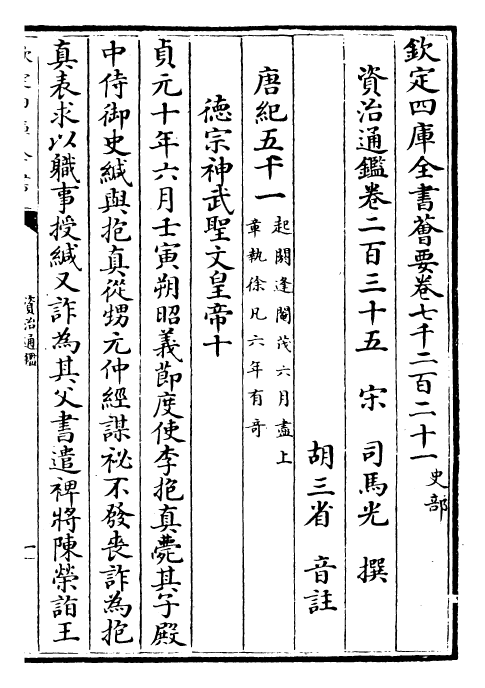 欽定四庫全書薈要卷七千二百二十一 史部
資治通鑑卷二百三十五 宋 司馬光 撰
胡三省 音註
唐紀五十一 起閼逢閹茂六月盡上章執徐凡六年有奇
德宗神武聖文皇帝十
貞元十年六月壬寅朔昭義節度使李抱真薨其子殿
中侍御史緘與抱真從甥元仲經謀祕不發喪詐為抱
真表求以職事授緘又詐為其父書遣裨將陳榮詣王
資治通鑑
一